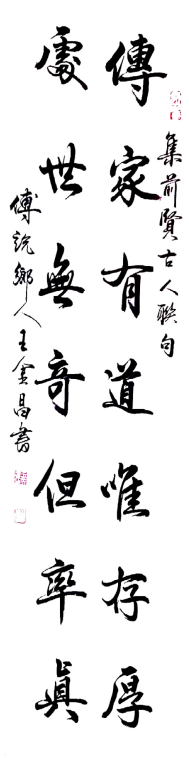 集前賢古人聯句
傳家有道唯存厚
處世無奇但率真
傅說鄉人王金昌書